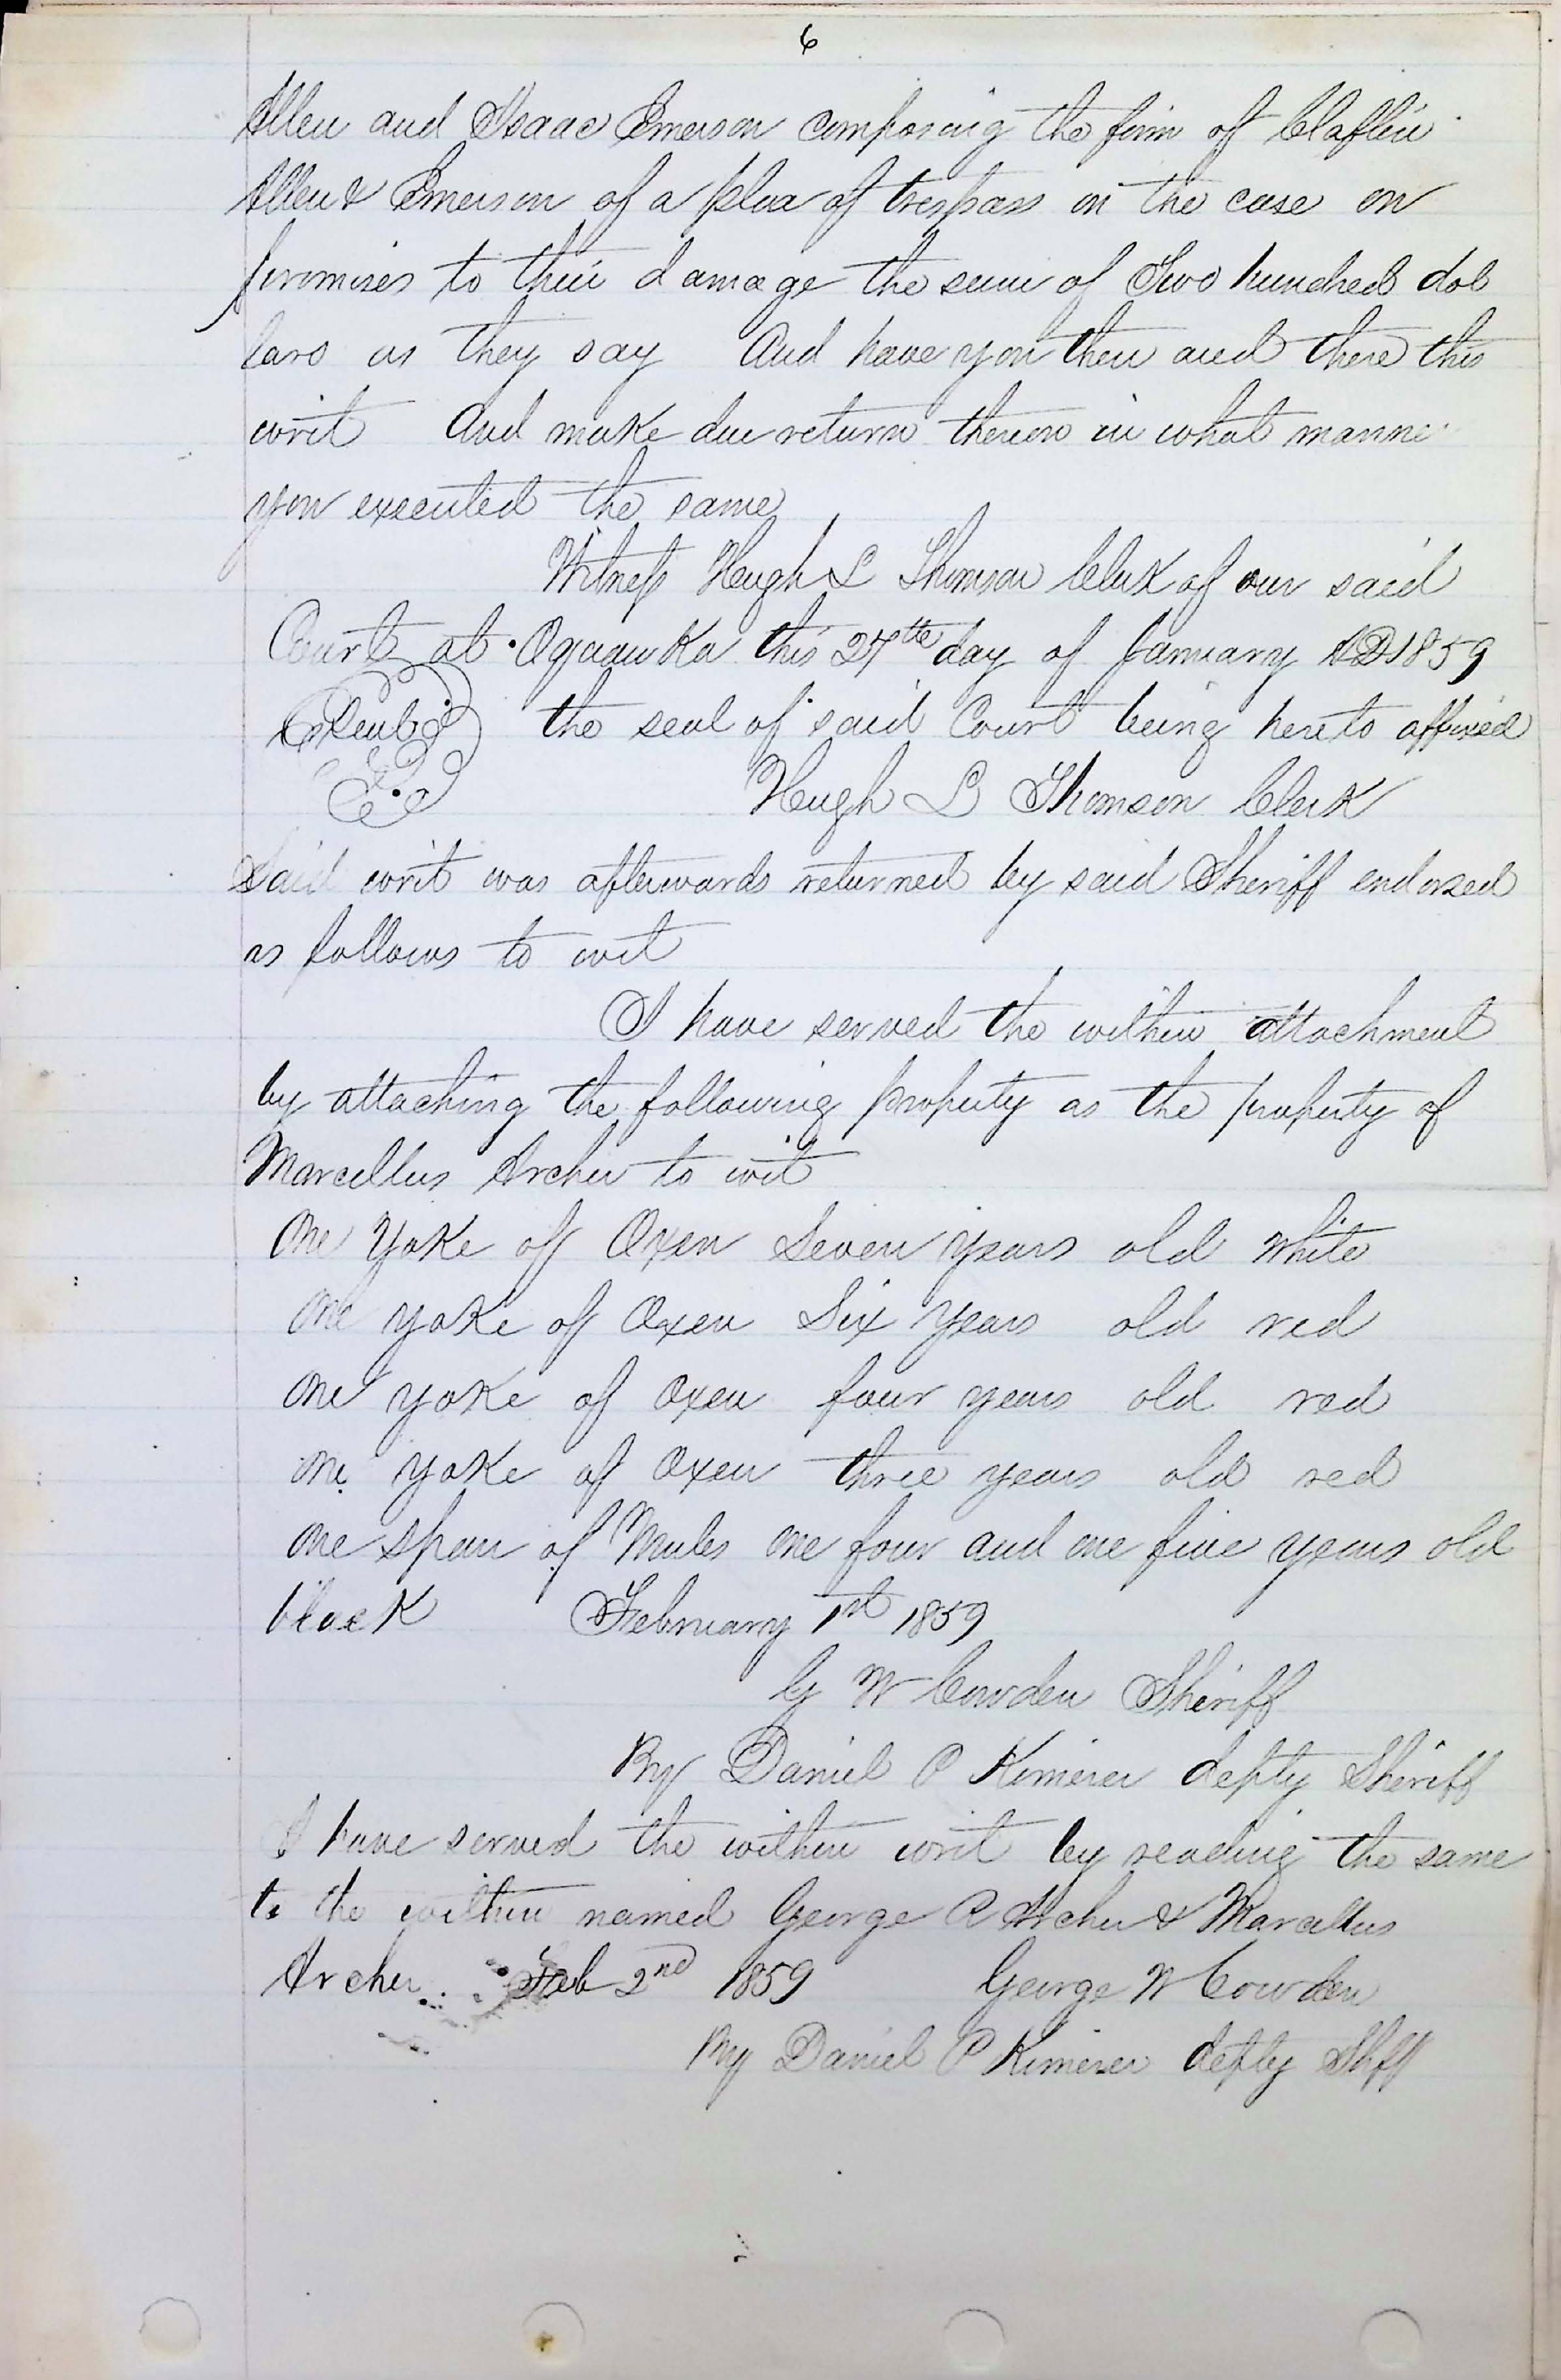 6
Allen and Isaac Emerson composing the firm of Claflin
Allen & Emerson of a plea of trespass on the case on
promises to their damage the sum of Two hundred dol
lars as they say And have you then and there this
writ And make due return thereon in what manner
you executed the same
Witness Hugh L Thomson Clerk of our said
Court at Oquawka this 27th day of January AD 1859
Seal the seal of said Court being hereto affixed
Hugh L Thomson Clerk
Said writ was afterwards returned by said Sheriff endorsed
as follows to wit
I have served the within attachment
by attaching the following property as the property of
Marcellus Archer to wit
One Yoke of Oxen Seven years old White
One yoke of Oxen Six years old red
One yoke of Oxen four years old red
One yoke of Oxen three years old red
One span of Mules one four and one five years old
black February 1st 1859
G W Cowden Sheriff
By Daniel P Kimerer depty Sheriff
I have served the within writ by reading the same
to the within named George A Archer & Marcellus
Archer Feb 2nd 1859 George W Cowden
By Daniel P Kimerer depty Shff